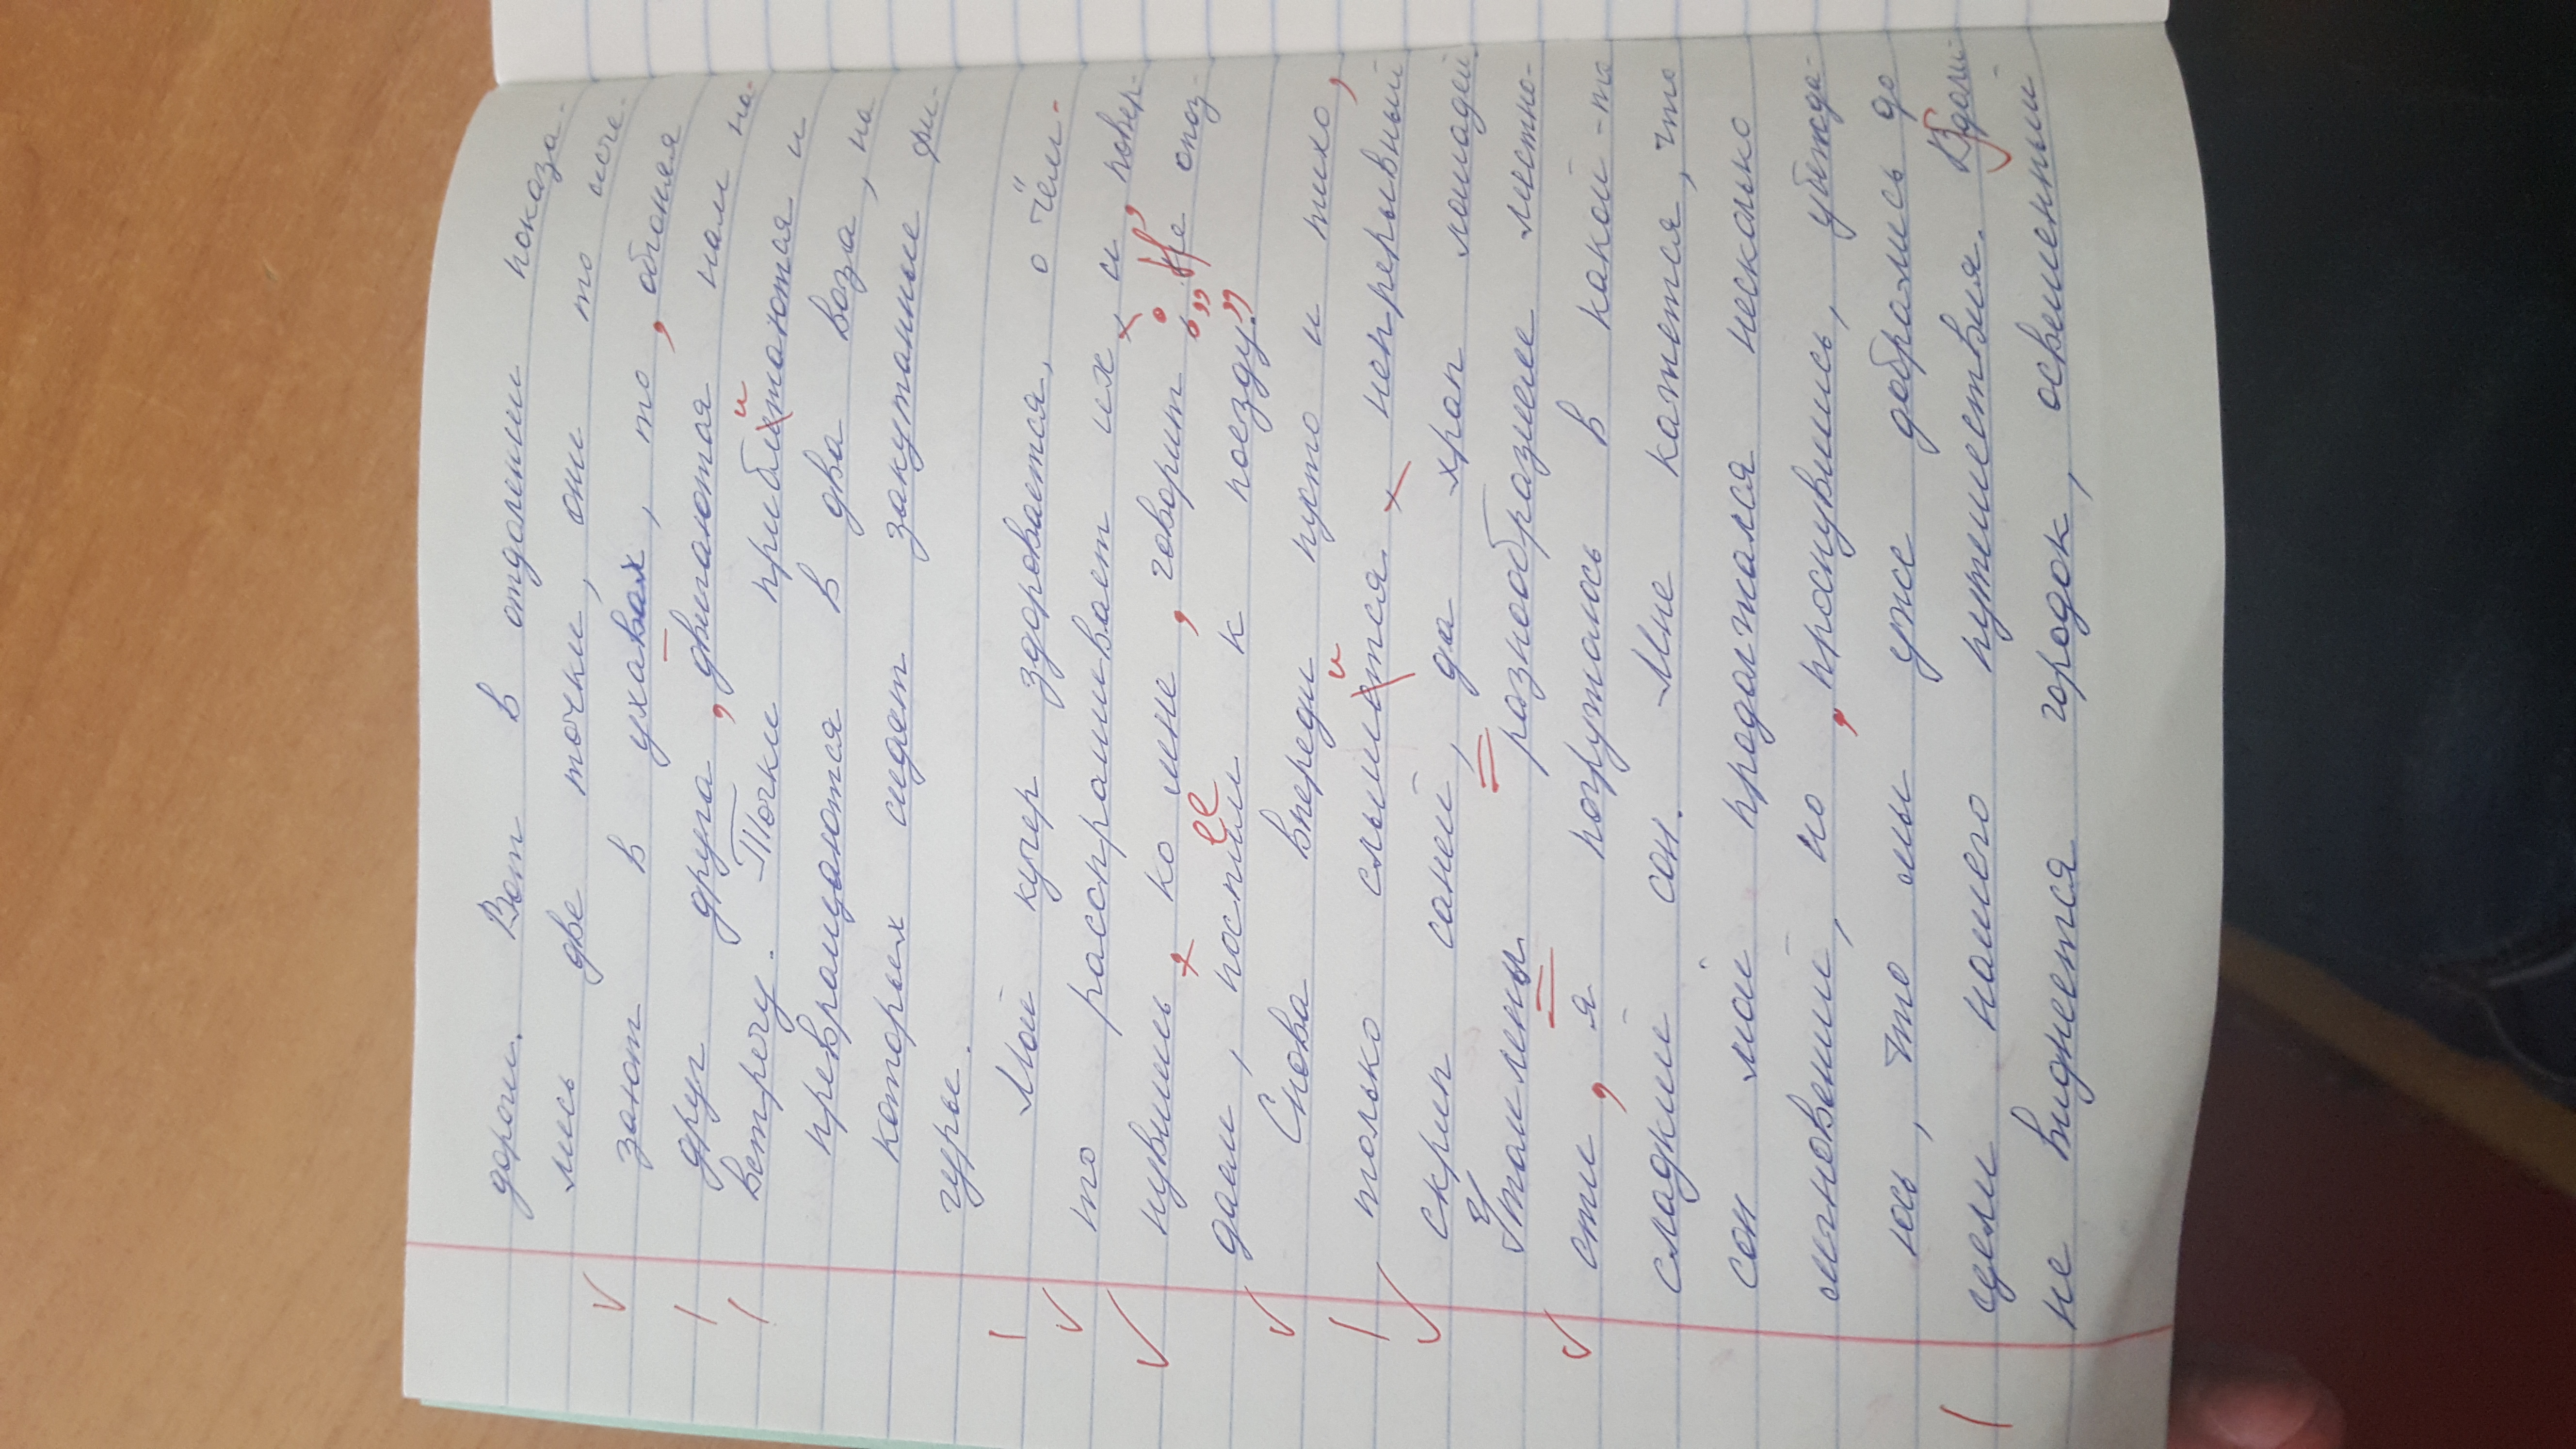 дороги. Вот в отдалении показа-
лись две точки, они то исче-
зают в ухавах, то, обгоняя
друг друга, двигаются нам на-
встречу. Точки приближаются и
превращаются в два воза, на
которых сидят закутанные фи-
гуры.
Мой кучер здоровается, о чём-
то расспрашивает их и, повер-
нувшись ко мне, говорит: „Не опоз-
даем, поспеем к поезду.”
Снова впереди пусто и тихо,
только слышится непрерывный
скрип саней, да храп лошадей.
Утомлены разнообразием местно-
сти, я погружаюсь в какой-то
сладкий сон. Мне кажется, что
сон мой продолжался несколько
мгновений, но, проснувшись, убежда-
юсь, что мы уже добрались до
цели нашего путешествия. Вдали
не виднеется городок, освещенный